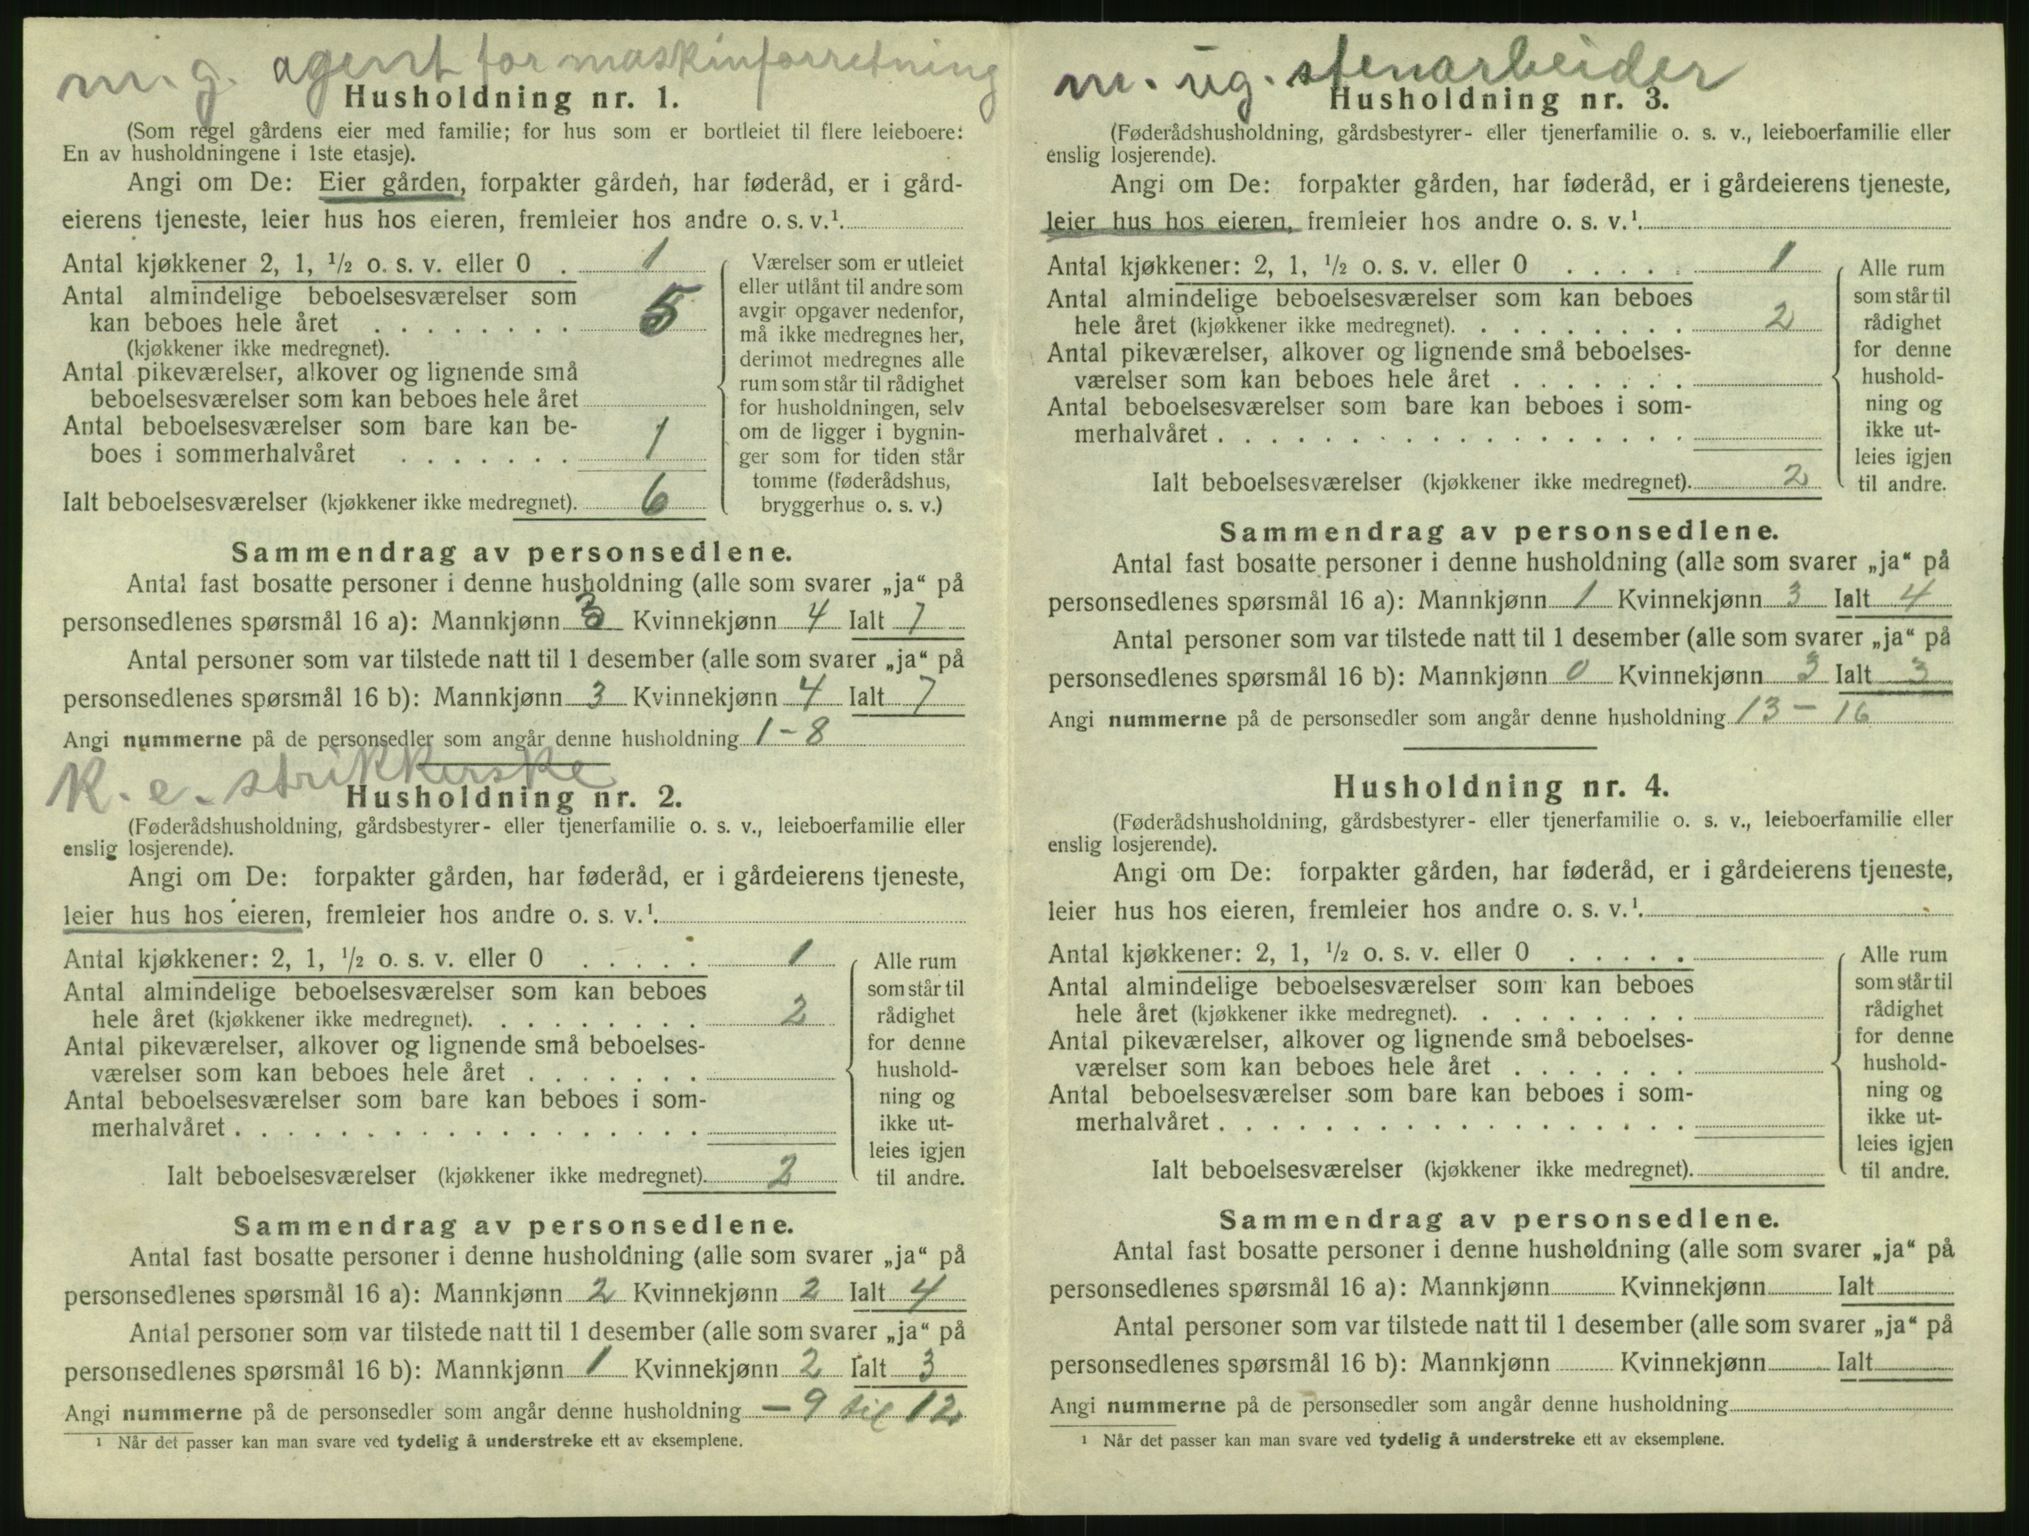 m. g. agent for maskinforretning
Husholdning nr. 1.
(Som regel gårdens eier med familie; for hus som er bortleiet til flere leieboere:
En av husholdningene i 1ste etasje).
Angi om De: Eier gården, forpakter gården, har føderåd, er i gård-
eierens tjeneste, leier hus hos eieren, fremleier hos andre o. s. v.¹
Antal kjøkkener 2, 1, ½ o. s. v. eller 0 . 1
Antal almindelige beboelsesværelser som
kan beboes hele året . . . . . . . . 5
(kjøkkener ikke medregnet).
Antal pikeværelser, alkover og lignende små
beboelsesværelser som kan beboes hele året
Antal beboelsesværelser som bare kan be-
boes i sommerhalvåret . . . . . . . 1
Ialt beboelsesværelser (kjøkkener ikke medregnet). 6
Værelser som er utleiet
eller utlånt til andre som
avgir opgaver nedenfor,
må ikke medregnes her,
derimot medregnes alle
rum som står til rådighet
for husholdningen, selv
om de ligger i bygnin-
ger som for tiden står
tomme (føderådshus,
bryggerhus o. s. v.)
Sammendrag av personsedlene.
Antal fast bosatte personer i denne husholdning (alle som svarer „ja“ på
personsedlenes spørsmål 16 a): Mannkjønn 3 Kvinnekjønn 4 Ialt 7
Antal personer som var tilstede natt til 1 desember (alle som svarer „ja“ på
personsedlenes spørsmål 16 b): Mannkjønn 3 Kvinnekjønn 4 Ialt 7
Angi nummerne på de personsedler som angår denne husholdning 1 - 8
K. e. strikkerske
Husholdning nr. 2.
(Føderådshusholdning, gårdsbestyrer- eller tjenerfamilie o. s. v., leieboerfamilie eller
enslig losjerende).
Angi om De: forpakter gården, har føderåd, er i gårdeierens tjeneste,
leier hus hos eieren, fremleier hos andre o. s. v.¹
Antal kjøkkener: 2, 1, ½ o. s. v. eller 0 . . . . . 1
Antal almindelige beboelsesværelser som kan beboes
hele året (kjøkkener ikke medregnet). . . . . . . . 2
Antal pikeværelser, alkover og lignende små beboelses-
værelser som kan beboes hele året . . . . . . .
Antal beboelsesværelser som bare kan beboes i som-
merhalvåret . . . . . . . . . . . . . . . . . .
Ialt beboelsesværelser (kjøkkener ikke medregnet). 2
Alle rum
som står til
rådighet
for denne
hushold-
ning og
ikke ut-
leies igjen
til andre.
Sammendrag av personsedlene.
Antal fast bosatte personer i denne husholdning (alle som svarer „ja“ på
personsedlenes spørsmål 16 a): Mannkjønn 2 Kvinnekjønn 2 Ialt 4
Antal personer som var tilstede natt til 1 desember (alle som svarer „ja“ på
personsedlenes spørsmål 16 b): Mannkjønn 1 Kvinnekjønn 2 Ialt 3
Angi nummerne på de personsedler som angår denne husholdning - 9 til 12
¹ Når det passer kan man svare ved tydelig å understreke ett av eksemplene.
m. ug. stenarbeider
Husholdning nr. 3.
(Føderådshusholdning, gårdsbestyrer- eller tjenerfamilie o. s. v., leieboerfamilie eller
enslig losjerende).
Angi om De: forpakter gården, har føderåd, er i gårdeierens tjeneste,
leier hus hos eieren, fremleier hos andre o. s. v.¹
Antal kjøkkener: 2, 1, ½ o. s. v. eller 0 . . . . . 1
Antal almindelige beboelsesværelser som kan beboes
hele året (kjøkkener ikke medregnet). . . . . . . . 2
Antal pikeværelser, alkover og lignende små beboelses-
værelser som kan beboes hele året . . . . . . .
Antal beboelsesværelser som bare kan beboes i som-
merhalvåret . . . . . . . . . . . . . . . . . .
Ialt beboelsesværelser (kjøkkener ikke medregnet). 2
Alle rum
som står til
rådighet
for denne
hushold-
ning og
ikke ut-
leies igjen
til andre.
Sammendrag av personsedlene.
Antal fast bosatte personer i denne husholdning (alle som svarer „ja“ på
personsedlenes spørsmål 16 a): Mannkjønn 1 Kvinnekjønn 3 Ialt 4
Antal personer som var tilstede natt til 1 desember (alle som svarer „ja“ på
personsedlenes spørsmål 16 b): Mannkjønn 0 Kvinnekjønn 3 Ialt 3
Angi nummerne på de personsedler som angår denne husholdning 13 - 16
Husholdning nr. 4.
(Føderådshusholdning, gårdsbestyrer- eller tjenerfamilie o. s. v., leieboerfamilie eller
enslig losjerende).
Angi om De: forpakter gården, har føderåd, er i gårdeierens tjeneste,
leier hus hos eieren, fremleier hos andre o. s. v.¹
Antal kjøkkener: 2, 1, ½ o. s. v. eller 0 . . . . .
Antal almindelige beboelsesværelser som kan beboes
hele året (kjøkkener ikke medregnet). . . . . . . .
Antal pikeværelser, alkover og lignende små beboelses-
værelser som kan beboes hele året . . . . . . .
Antal beboelsesværelser som bare kan beboes i som-
merhalvåret . . . . . . . . . . . . . . . . . .
Ialt beboelsesværelser (kjøkkener ikke medregnet).
Alle rum
som står til
rådighet
for denne
hushold-
ning og
ikke ut-
leies igjen
til andre.
Sammendrag av personsedlene.
Antal fast bosatte personer i denne husholdning (alle som svarer „ja“ på
personsedlenes spørsmål 16 a): Mannkjønn Kvinnekjønn Ialt
Antal personer som var tilstede natt til 1 desember (alle som svarer „ja“ på
personsedlenes spørsmål 16 b): Mannkjønn Kvinnekjønn Ialt
Angi nummerne på de personsedler som angår denne husholdning
¹ Når det passer kan man svare ved tydelig å understreke ett av eksemplene.